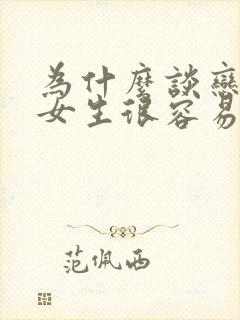 為什麼談戀
女生很容易
范佩西